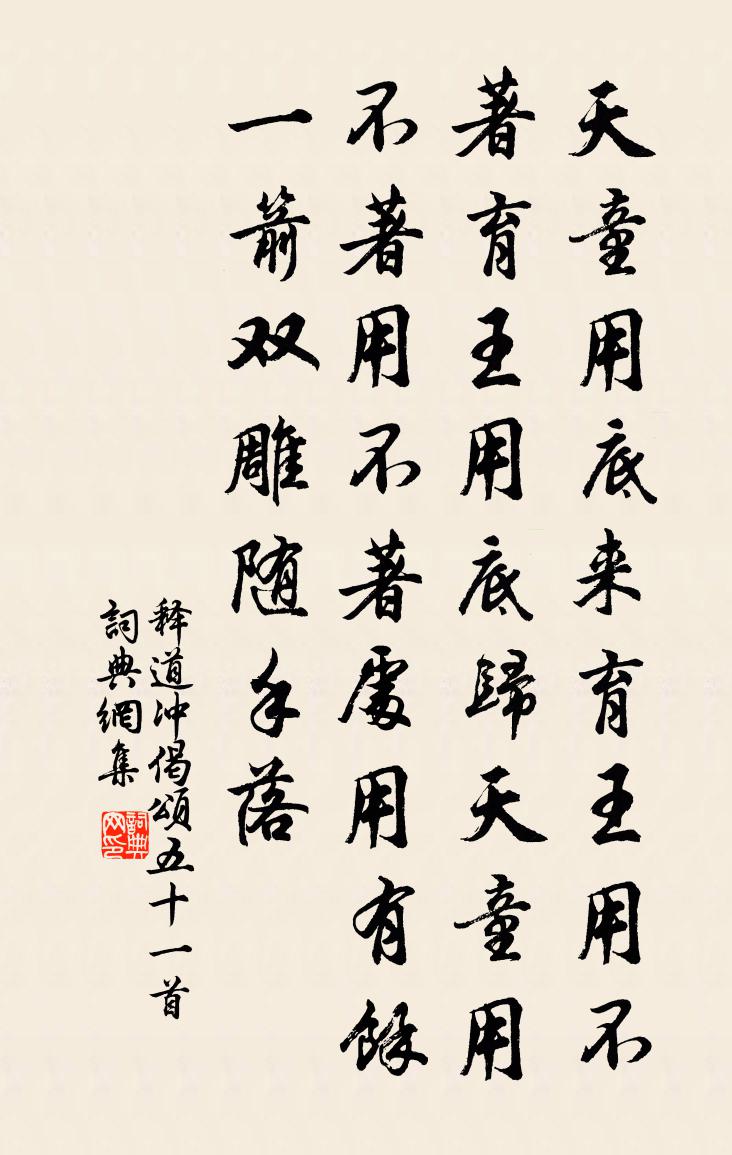 天童用底来育王用不
著育王用底歸天童用
不著用不著處用有餘
一箭双雕随手落
释道冲偈頌五十一首
詞典網集
詞典网印